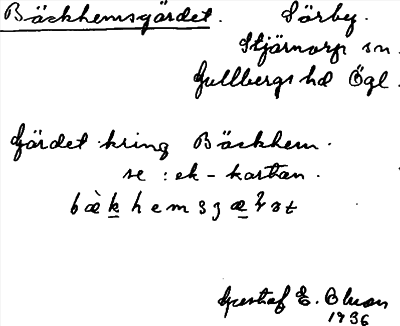 Bäckhemsgärdet. Sörby.
Stjärnorp sn.
Gullbergs hd Ögl.
Gärdet kring Bäckhem.
se : ek-kartan.
Gustaf E. Olsson
1936